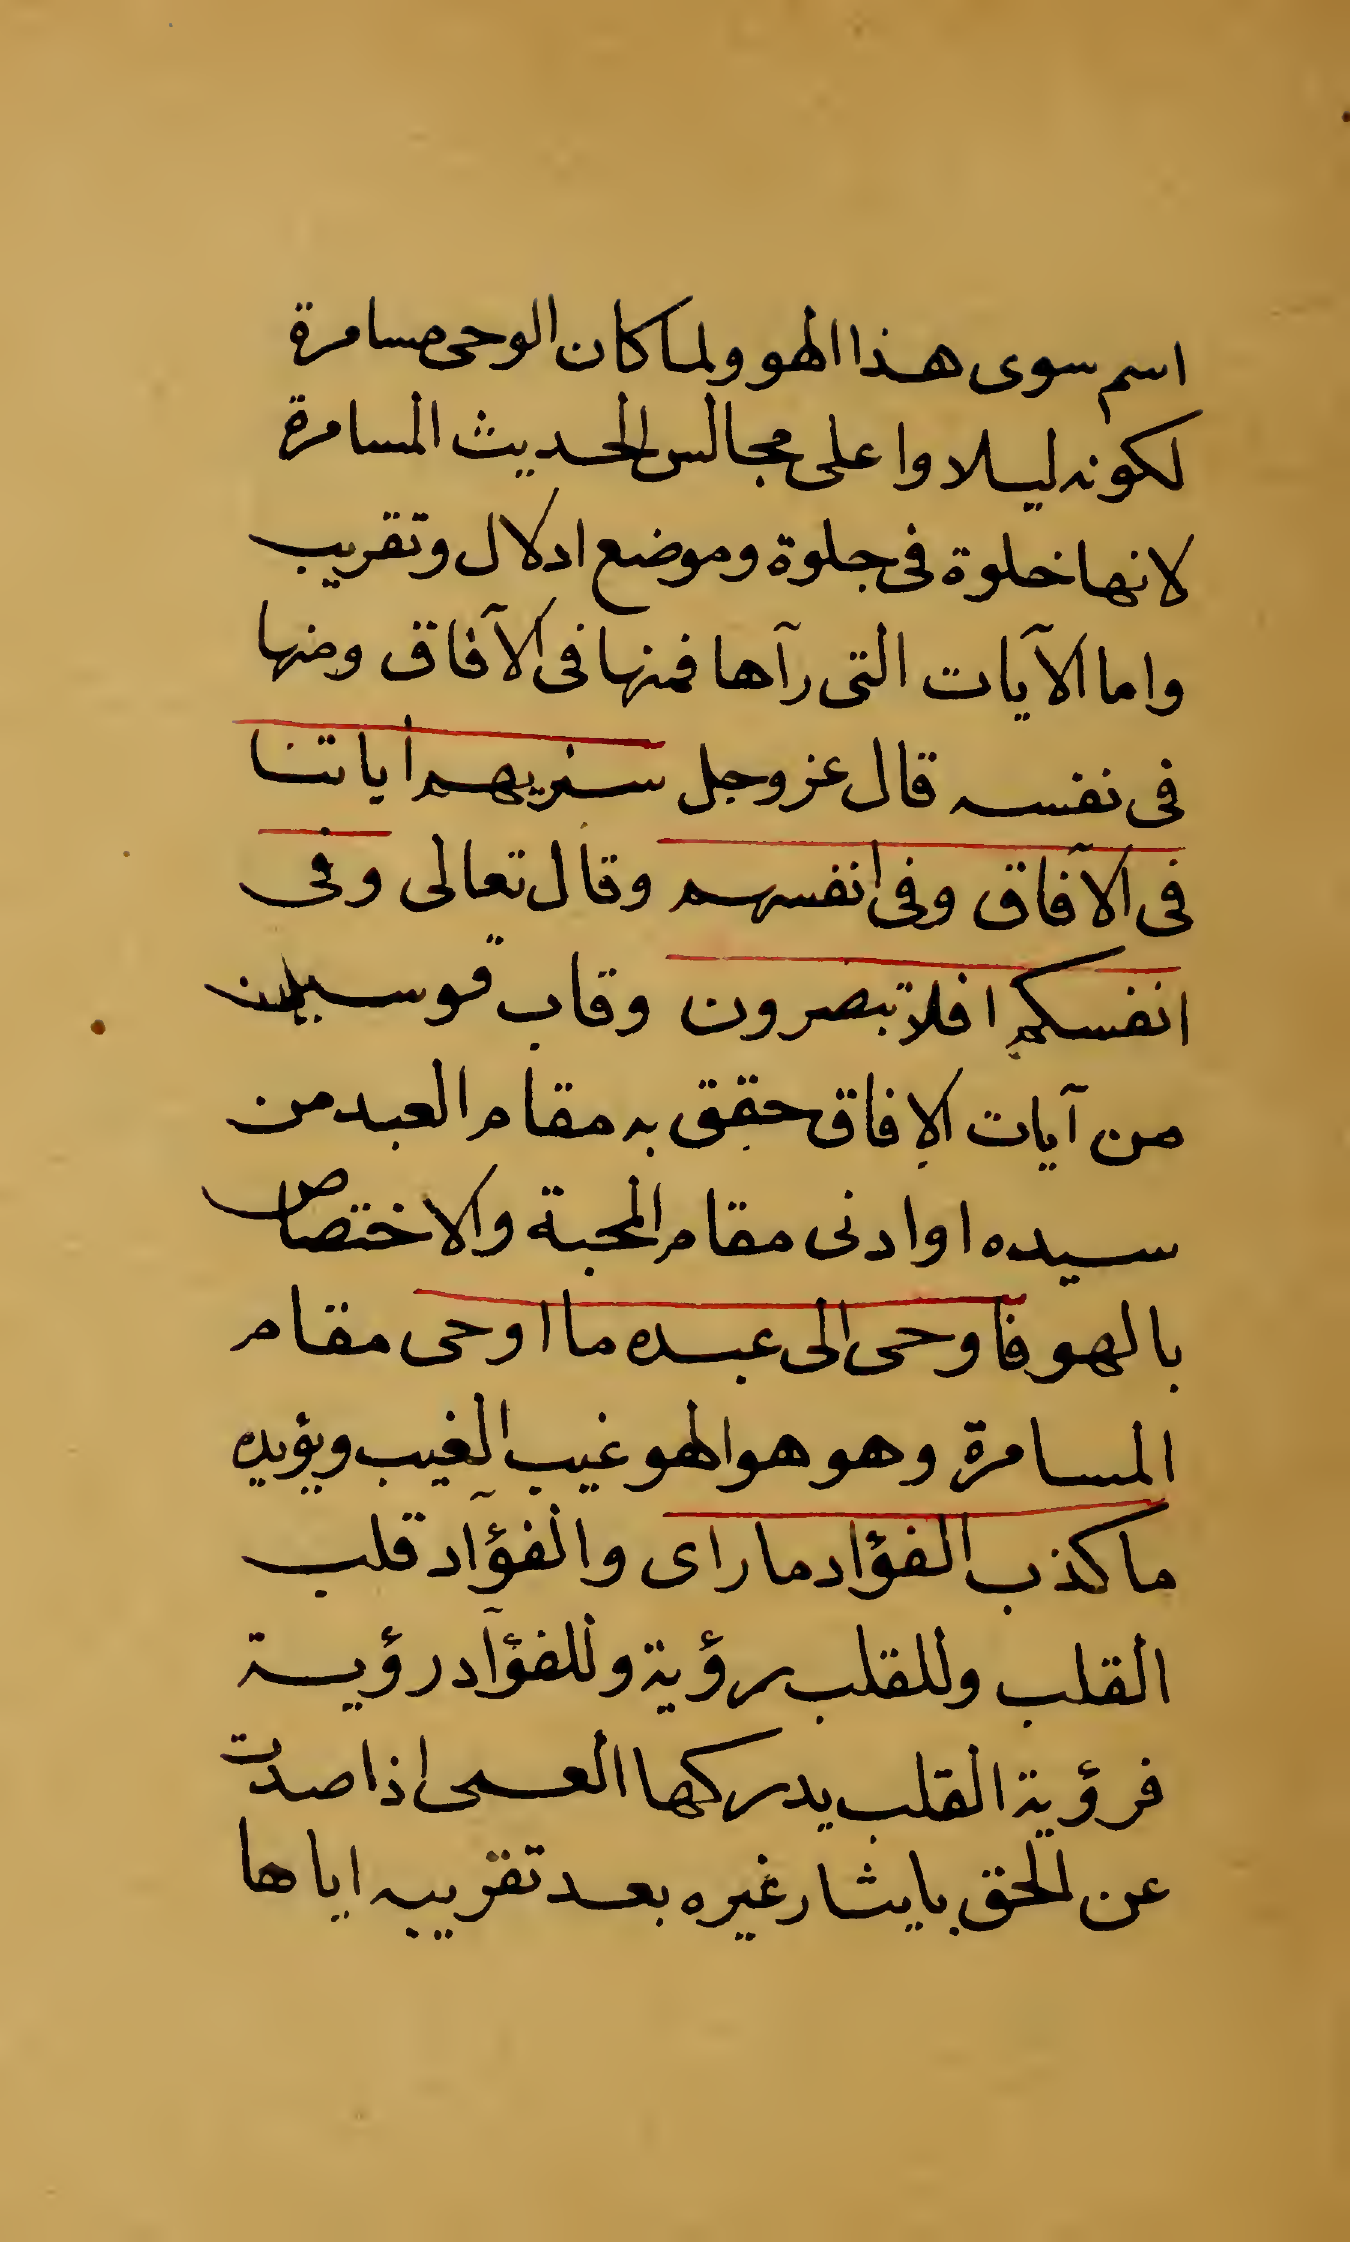 اسم سوى هذا الهو ولما كان الوحى مسامرة
لكونه ليلا واعلى مجالس الحديث المسامرة
لانها خلوة فى جلوة وموضع ادلال وتقريب
واما الآيات التى رآها فمنها فى الآفاق ومنها
فى نفسه قال عز وجل سنريهم اياتنا
فى الآفاق وفى انفسهم وقال تعالى وفى
انفسكم افلا تبصرون وقاب قوسين
من آيات الافاق حقق به مقام العبد من
سيده او ادنى مقام المحبة والاختصاص
بالهو فاوحى الى عبده ما اوحى مقام
المسامرة وهو هو الهو غيب الغيب ويؤيده
ما كذب الفؤاد ما راى والفؤآد قلب
القلب وللقلب رؤية وللفؤآد رؤية
فرؤية القلب يدركها العمى اذا صدت
عن الحق بايثار غيره بعد تقريبه اياها